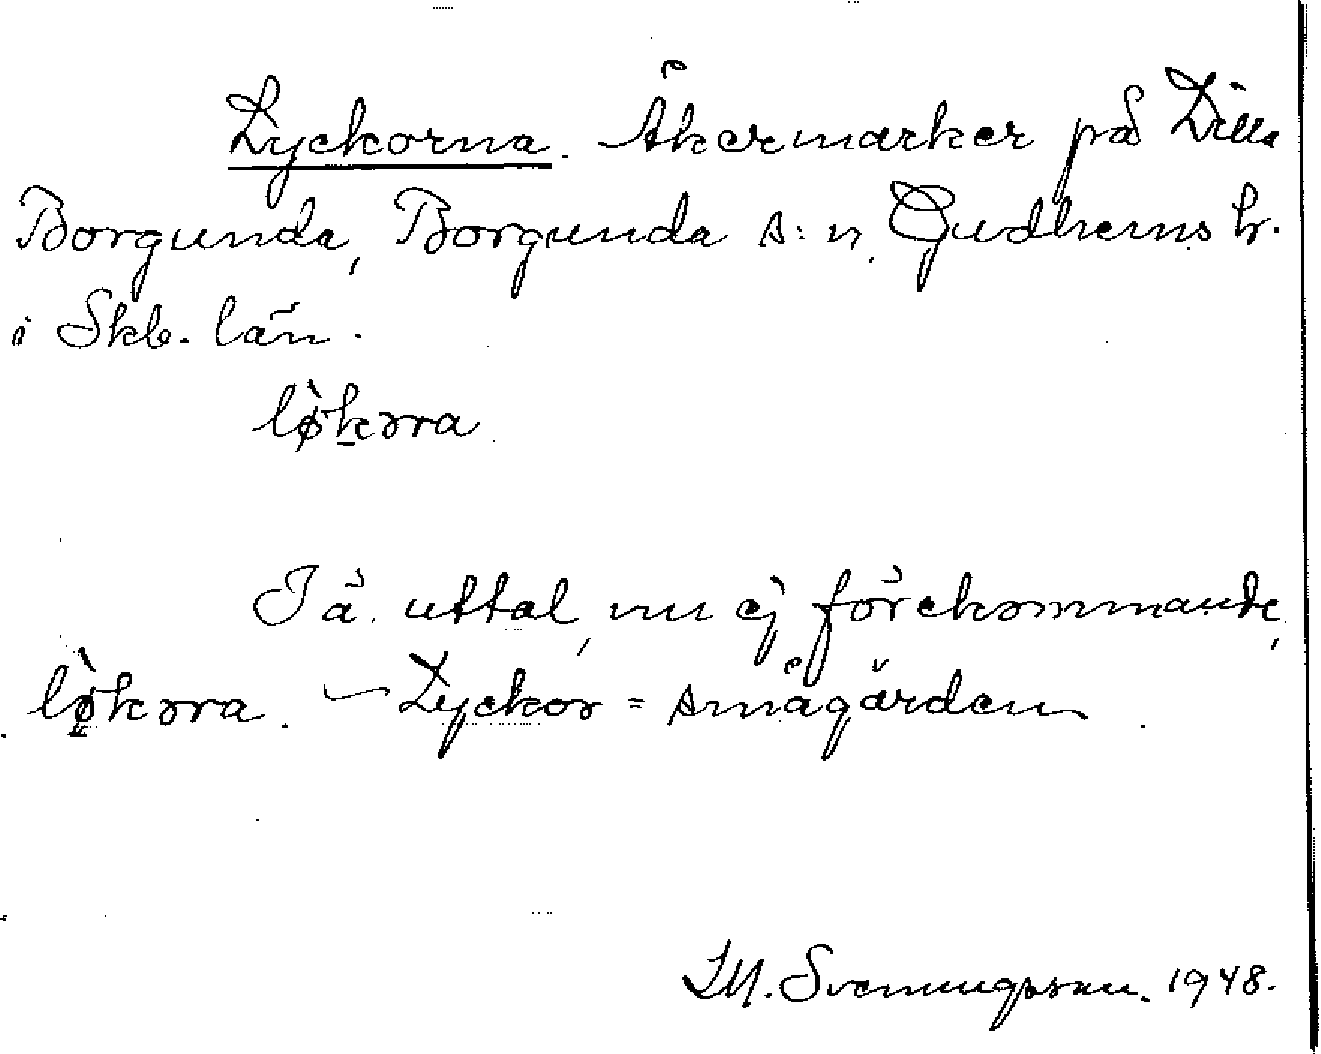 Lyckorna. Åkermarker på Lilla
Borgunda, Borgunda s:n, Gudhems h.
i Skb. län.
lø̀kɔrra
I ä. uttal, nu ej förekommande,
lø̀kɔrra. – Lyckor = smågärden
Svenungsson. 1948.